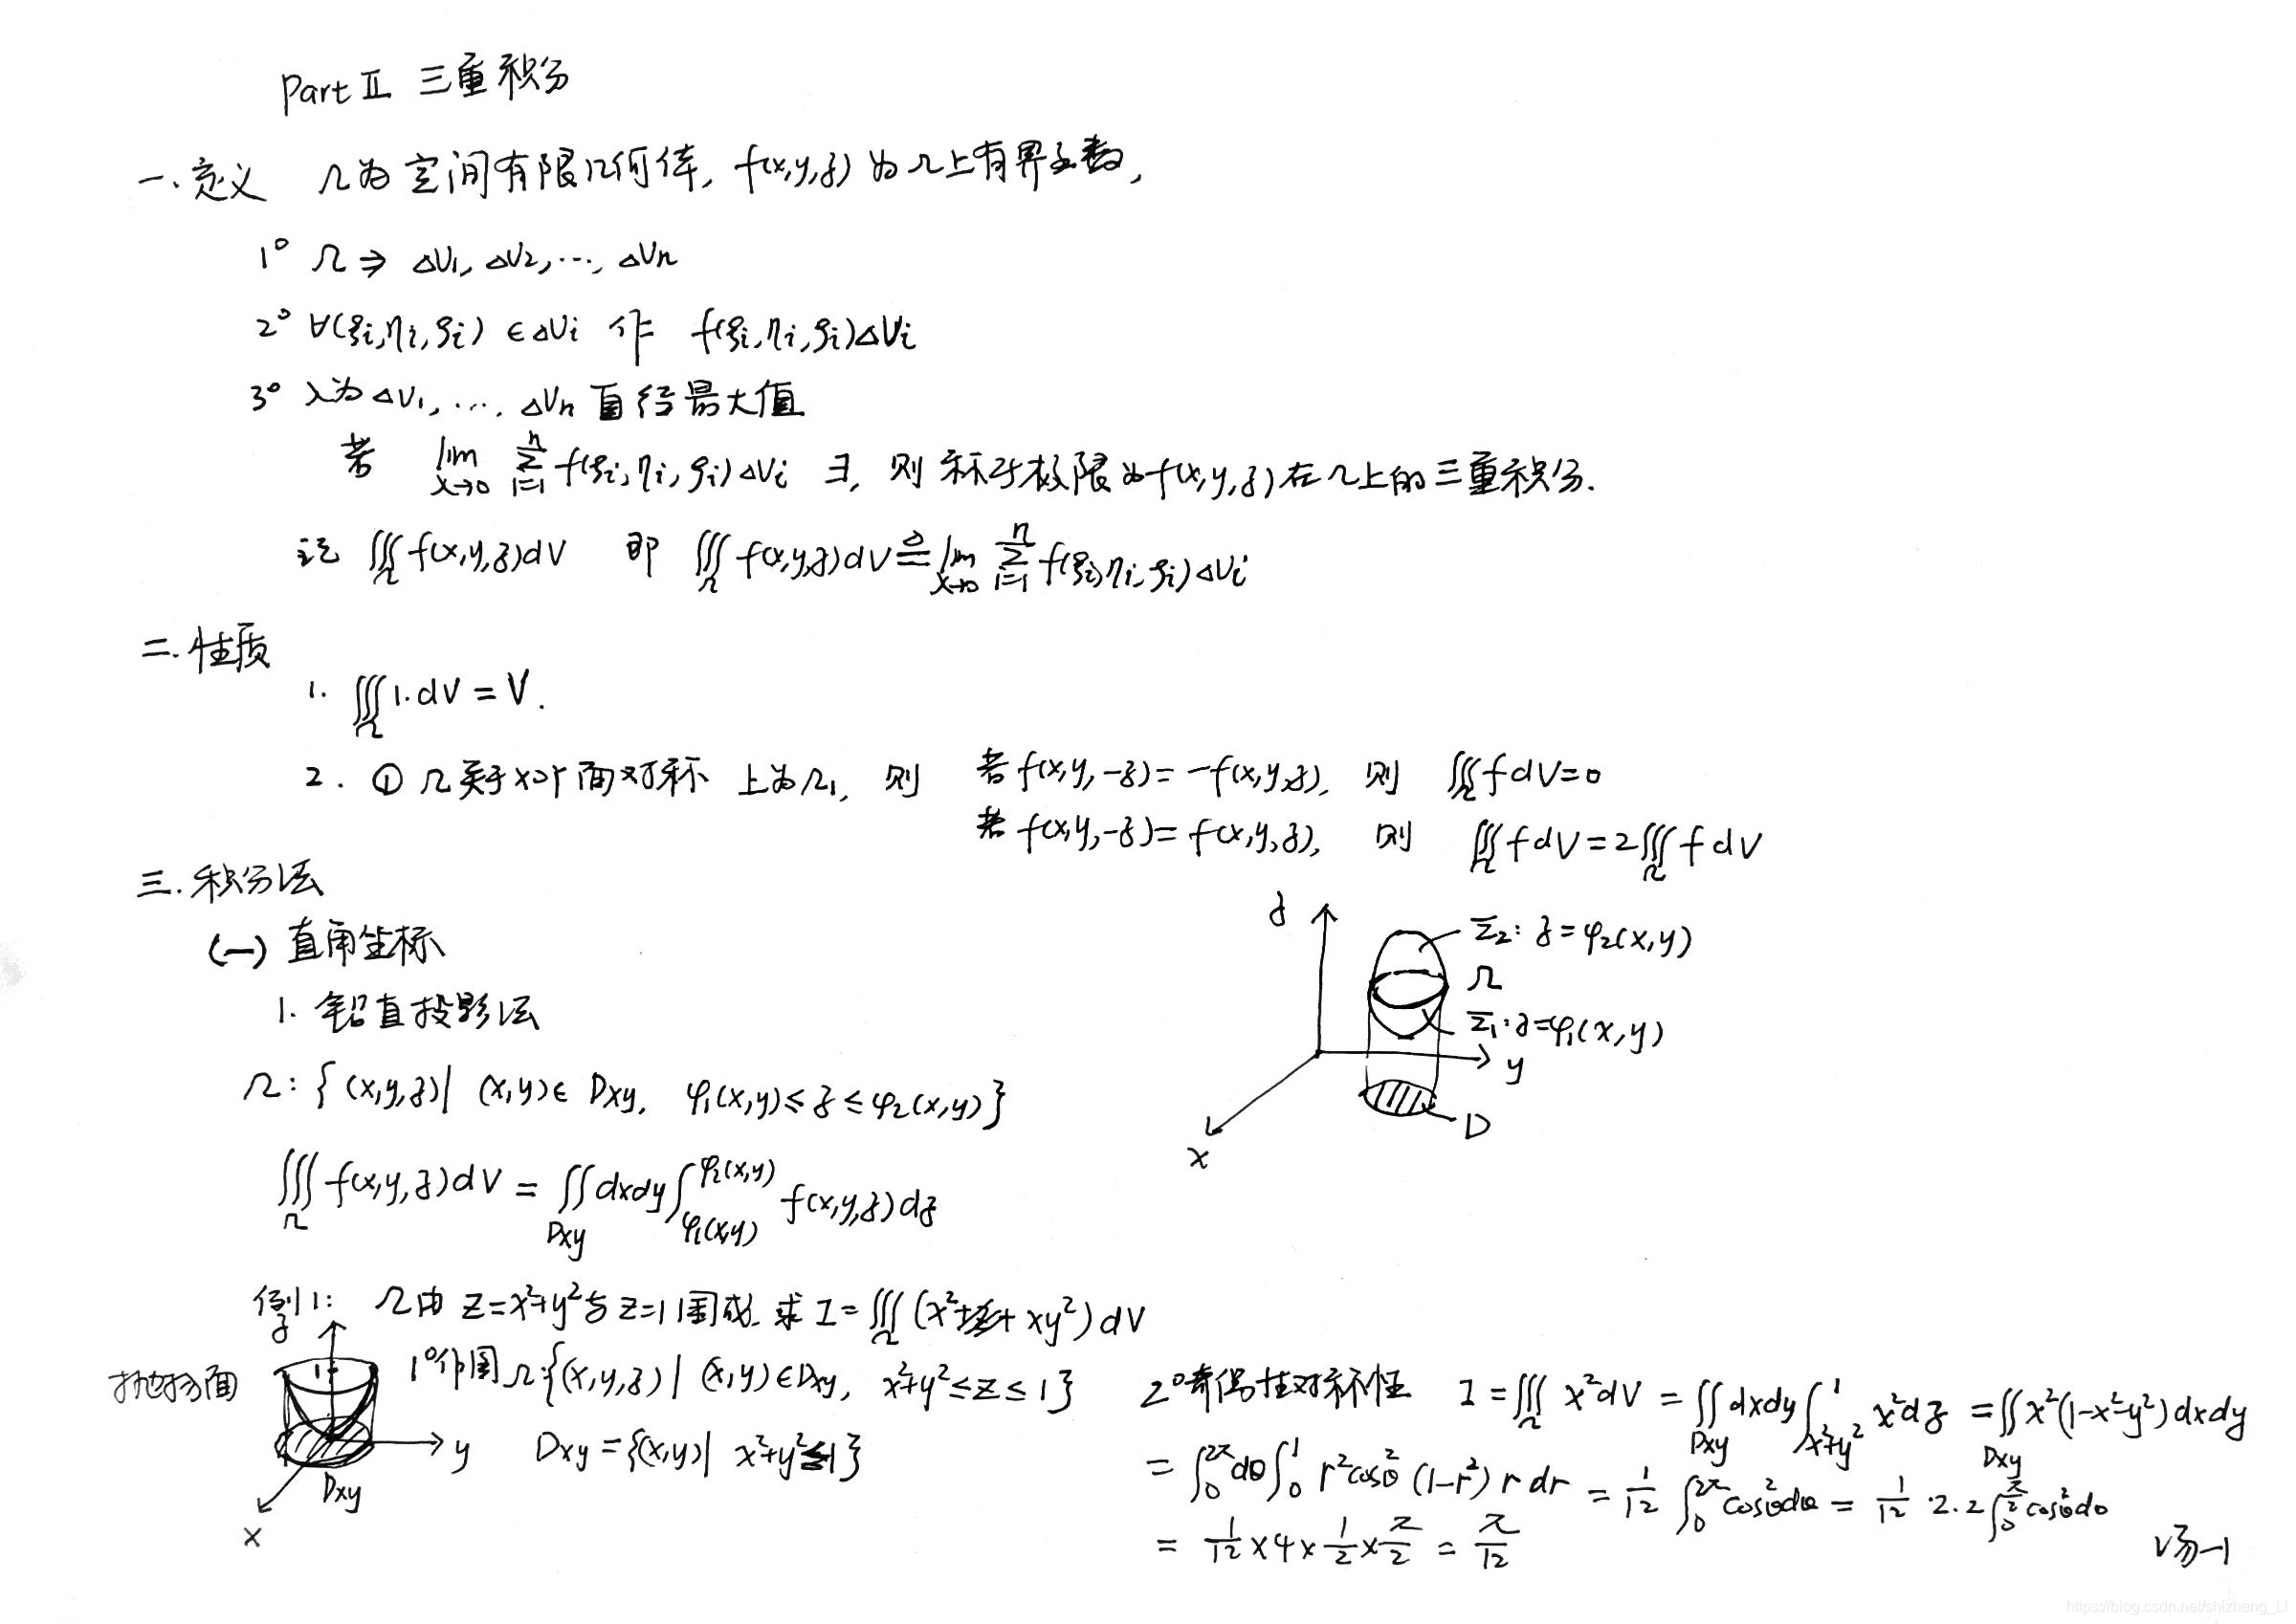 Part Ⅱ 三重积分
一、定义 Ω为空间有限几何体, f(x,y,z) 为Ω上有界函数,
1° Ω ⇒ ΔV₁, ΔV₂, ···, ΔVn
2° ∀(ξi,ηi,ζi) ∈ ΔVi 作 f(ξi,ηi,ζi)ΔVi
3° λ为ΔV₁, ···, ΔVn 直径最大值
若 lim λ→0 Σ i=1 n f(ξi,ηi,ζi)ΔVi ∃, 则称极限为f(x,y,z)在Ω上的三重积分.
记 ∭Ω f(x,y,z)dV 即 ∭Ω f(x,y,z)dV ≜ lim λ→0 Σ i=1 n f(ξi,ηi,ζi)ΔVi
二.性质
1. ∭Ω 1·dV = V.
2. ① Ω关于xoy面对称 上为Ω₁, 则 若 f(x,y,-z) = -f(x,y,z), 则 ∭Ω f dV = 0
若 f(x,y,-z) = f(x,y,z), 则 ∭Ω f dV = 2∭Ω f dV
三.积分法
(一) 直角坐标
z
Σ₂: z=φ₂(x,y)
Ω
Σ₁: z=φ₁(x,y)
y
D
x
1. 铅直投影法
Ω: {(x,y,z)| (x,y)∈Dxy, φ₁(x,y) ≤ z ≤ φ₂(x,y)}
∭Ω f(x,y,z)dV = ∬Dxy dxdy ∫φ₁(x,y)^φ₂(x,y) f(x,y,z)dz
例1: Ω由 z=x²+y² 与 z=1 围成. 求 I=∭Ω (x²+ xy²)dV
z
抛物面
1
y
Dxy
x
1°作图 Ω:{(x,y,z)| (x,y)∈Dxy, x²+y² ≤ z ≤ 1}
Dxy = {(x,y)| x²+y² ≤ 1}
2°奇偶性对称性 I = ∭Ω x²dV = ∬Dxy dxdy ∫x²+y²^1 x²dz = ∬Dxy x²(1-x²-y²)dxdy
= ∫0^2π dθ ∫0^1 r²cos²θ (1-r²) r dr = 1/12 ∫0^2π cos²θdθ = 1/12 · 2·2∫0^π/2 cos²θdθ
= 1/12 × 4 × 1/2 × π/2 = π/12
https://blog.csdn.net/shizheng_Li